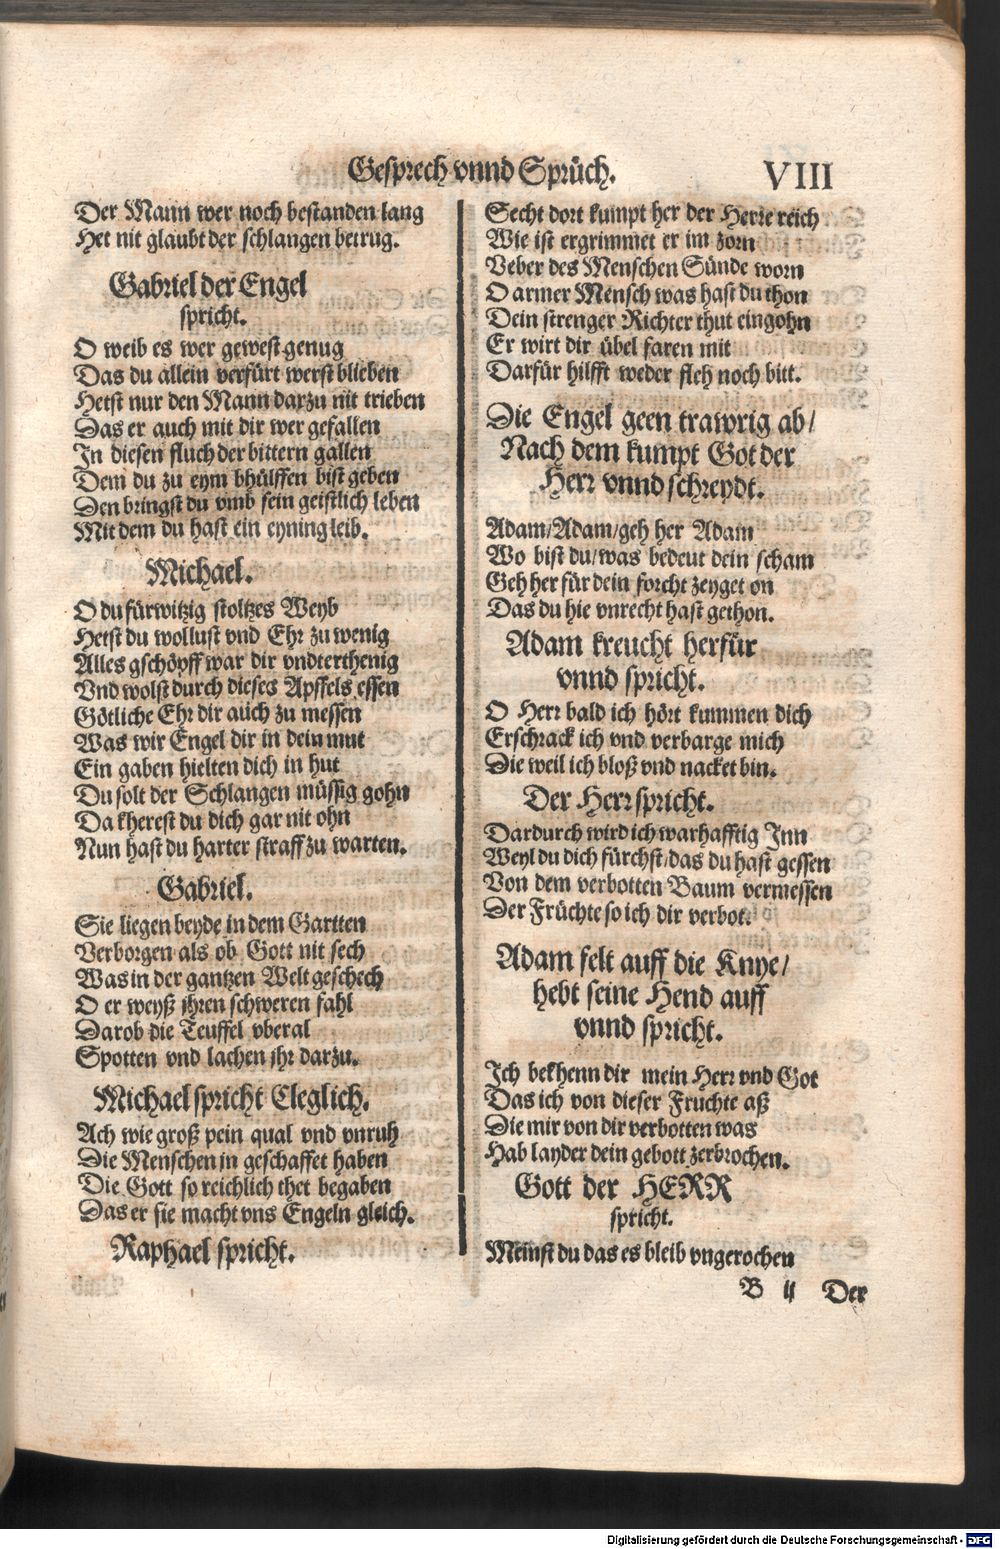 Gesprech vnnd Sprüch. VIII
Der Mann wer noch bestanden lang
Het nit glaubt der schlangen betrug.
Gabriel der Engel
spricht.
O weib es wer gewest genug
Das du allein verfürt werst blieben
Hetst nur den Mann darzu nit trieben
Das er auch mit dir wer gefallen
In diesen fluch der bittern gallen
Dem du zu eym bhülffen bist geben
Den bringst du vmb sein geistlich leben
Mit dem du hast ein eyning leib.
Michael.
O du fürwitzig stoltzes Weyb
Hetst du wollust vnd Ehr zu wenig
Alles gschöpff war dir vndterthenig
Vnd wolst durch dieses Apffels essen
Götliche Ehr dir auch zu messen
Was wir Engel dir in dein mut
Ein gaben hielten dich in hut
Du solt der Schlangen müssig gohn
Da kherest du dich gar nit ohn
Nun hast du harter straff zu warten.
Gabriel.
Sie liegen beyde in dem Gartten
Verborgen als ob Gott nit sech
Was in der gantzen Welt geschech
O er weyß jhren schweren fahl
Darob die Teuffel vberal
Spotten vnd lachen jhr darzu.
Michael spricht Cleglich.
Ach wie groß pein qual vnd vnruh
Die Menschen jn geschaffet haben
Die Gott so reichlich thet begaben
Das er sie macht vns Engeln gleich.
Raphael spricht.
Secht dort kumpt her der Herre reich
Wie ist ergrimmet er im zorn
Veber des Menschen Sünde worn
O armer Mensch was hast du thon
Dein strenger Richter thut eingohn
Er wirt dir übel faren mit
Darfür hilfft weder fleh noch bitt.
Die Engel geen trawrig ab/
Nach dem kumpt Got der
Herr vnnd schreydt.
Adam/Adam/geh her Adam
Wo bist du/was bedeut dein scham
Geh herfür dein forcht zeyget on
Das du hie vnrecht hast gethon.
Adam kreucht herfür
vnnd spricht.
O Herr bald ich hört kummen dich
Erschrack ich vnd verbarge mich
Die weil ich bloß vnd nacket bin.
Der Herr spricht.
Dardurch wird ich warhafftig Inn
Weyl du dich fürchst/das du hast gessen
Von dem verbotten Baum vermessen
Der Früchte so ich dir verbot.
Adam felt auff die Knye/
hebt seine Hend auff
vnnd spricht.
Ich bekhenn dir mein Herr vnd Got
Das ich von dieser Fruchte aß
Die mir von dir verbotten was
Hab layder dein gebott zerbrochen.
Gott der HERR
spricht.
Meinst du das es bleib vngerochen
B ij Der
Digitalisierung gefördert durch die Deutsche Forschungsgemeinschaft - DFG